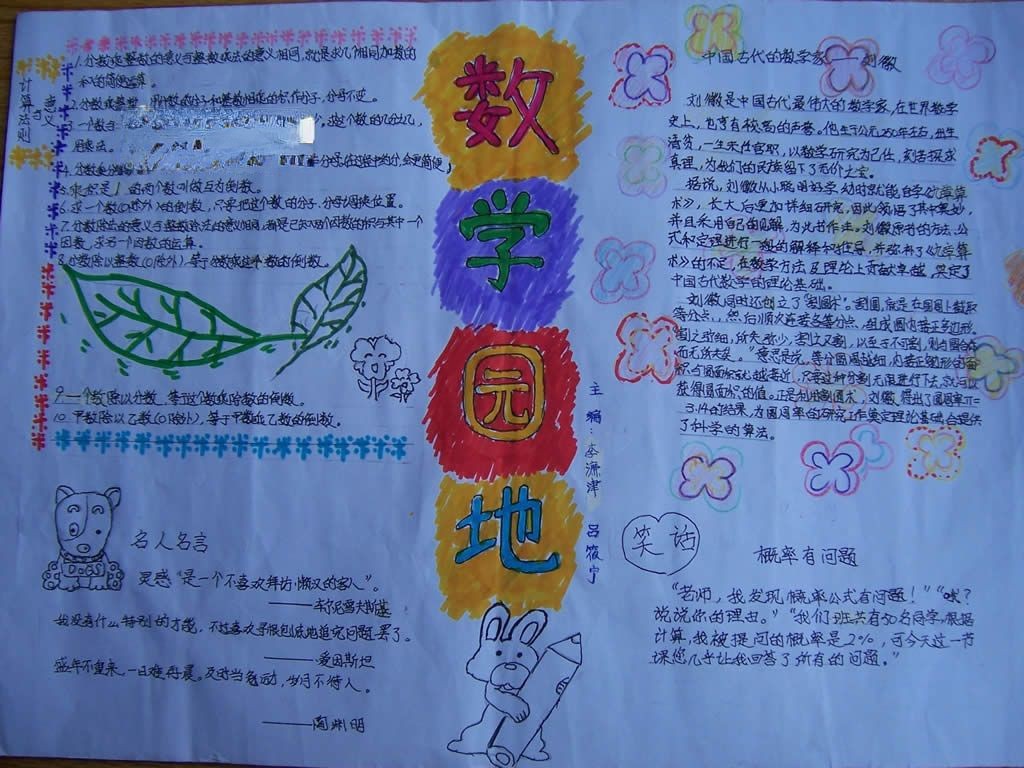 数学园地
主编：李源津 吕筱宁
计算法则
与
意义
1.分数乘整数的意义与整数乘法的意义相同，就是求几个相同加数的
和的简便运算。
2.分数乘整数，用分数的分子和整数相乘的积作分子，分母不变。
3.一个数与
少，求这个数的几分之几，
用乘法。
4.分数乘分数
能约分的先约分，会更简便。
5.乘积是1的两个数叫做互为倒数。
6.求一个数(0除外)的倒数，只要把这个数的分子、分母调换位置。
7.分数除法的意义与整数除法的意义相同，都是已知两个因数的积与其中一个
因数，求另一个因数的运算。
8.分数除以整数(0除外)，等于分数乘这个数的倒数。
9.一个数除以分数，等于这个数乘除数的倒数。
10.甲数除以乙数(0除外)，等于甲数乘乙数的倒数。
名人名言
灵感“是一个不喜欢拜访懒汉的客人”。
——车尔尼雪夫斯基
我没有什么特别的才能，不过喜欢寻根刨底地追究问题罢了。
——爱因斯坦
盛年不重来，一日难再晨。及时当勉励，岁月不待人。
——陶渊明
中国古代的数学家—刘徽
刘徽是中国古代最伟大的数学家，在世界数学
史上，也享有极高的声誉。他生于公元250年左右，出生
清贫，一生未仕官职，以数学研究为己任，刻苦探求
真理，为他们的民族留下了无价之宝。
据说，刘徽从小聪明好学，幼时就能自学《九章算
术》，长大后更加详细研究，因此领悟了其中奥妙，
并且采用自己的见解，为此书作注。刘徽原书的方法、公
式和定理进行一般的解释和推导，并弥补了《九章算
术》的不足，在数学方法及理论上贡献卓越，奠定了
中国古代数学的理论基础。
刘徽同时还创立了“割圆术”。割圆，就是在圆周上截取
等分点，然后顺次连接各等分点，组成圆内接正多边形。
“割之弥细，所失弥少，割之又割，以至于不可割，则与圆合体
而无所失矣。”意思是说，等分圆周越细，内接正多边形的面
积与圆面积就越接近，只要这种分割无限进行下去，就可以
获得圆面积的值。正是利用割圆术，刘徽得出了圆周率π=
3.14的结果，为圆周率的研究工作奠定理论基础，合提供
了科学的算法。
笑话
概率有问题
“老师，我发现概率公式有问题！”“哦？
说说你的理由。”“我们班共有50名同学，根据
计算，我被提问的概率是2%，可今天这一节
课您几乎让我回答了所有的问题。”